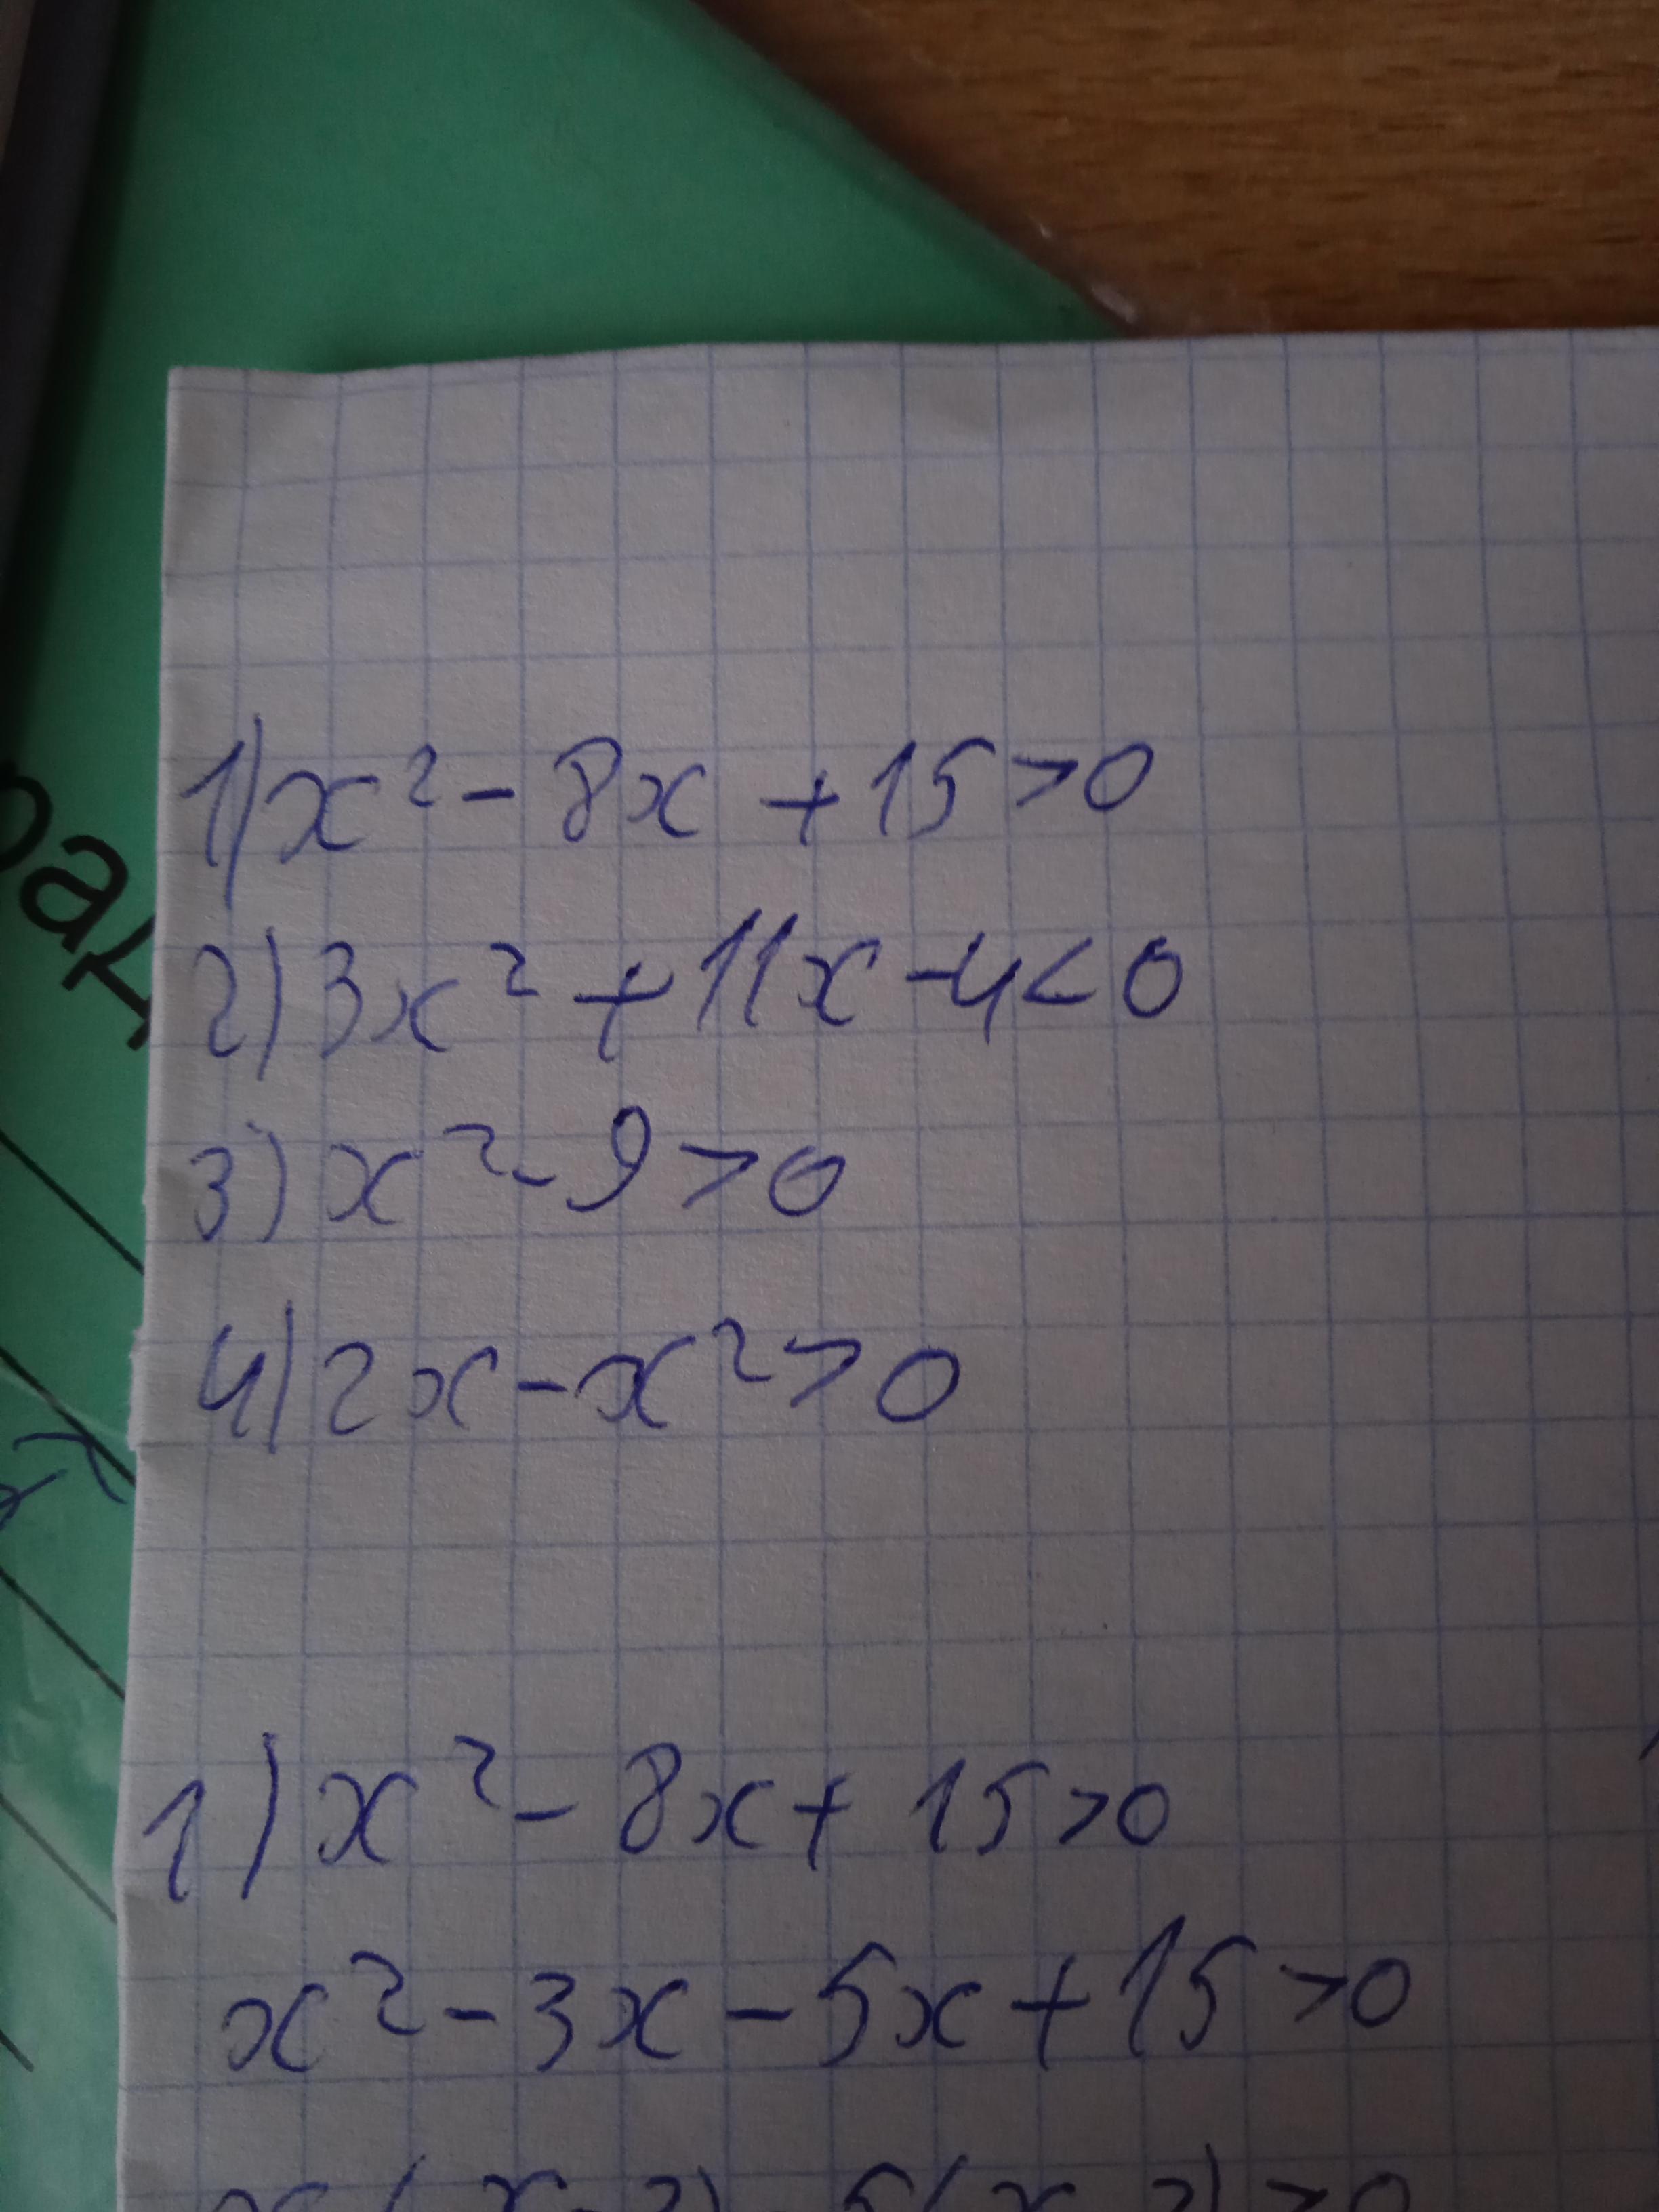 1) x² - 8x + 15 > 0
2) 3x² + 11x - 4 < 0
3) x² - 9 > 0
4) 2x - x² > 0
1) x² - 8x + 15 > 0
x² - 3x - 5x + 15 > 0
x(x-3) - 5(x-3) > 0